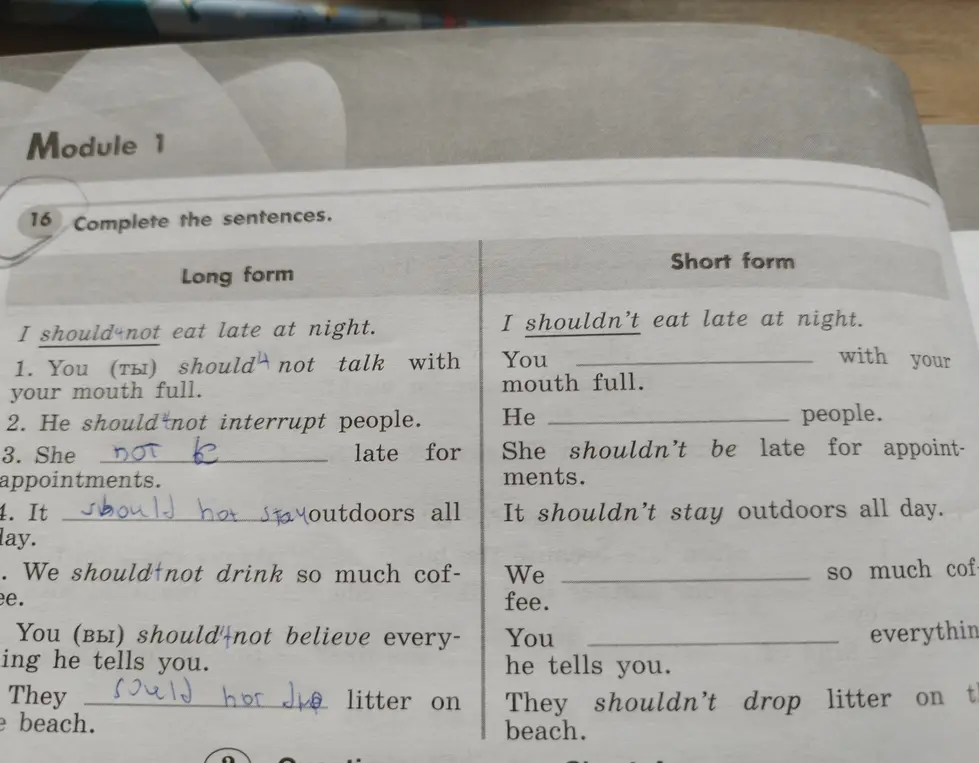 Module 1
16 Complete the sentences.
Long form
I should not eat late at night.
1. You (ты) should not talk with
your mouth full.
2. He should not interrupt people.
3. She not be late for
appointments.
4. It should not stay outdoors all
day.
. We should not drink so much cof-
ee.
You (вы) should not believe every-
ing he tells you.
They sould not litter on
e beach.
Short form
I shouldn't eat late at night.
You ____ with your
mouth full.
He ____ people.
She shouldn't be late for appoint-
ments.
It shouldn't stay outdoors all day.
We ____ so much cof-
fee.
You ____ everythin
he tells you.
They shouldn't drop litter on t
beach.